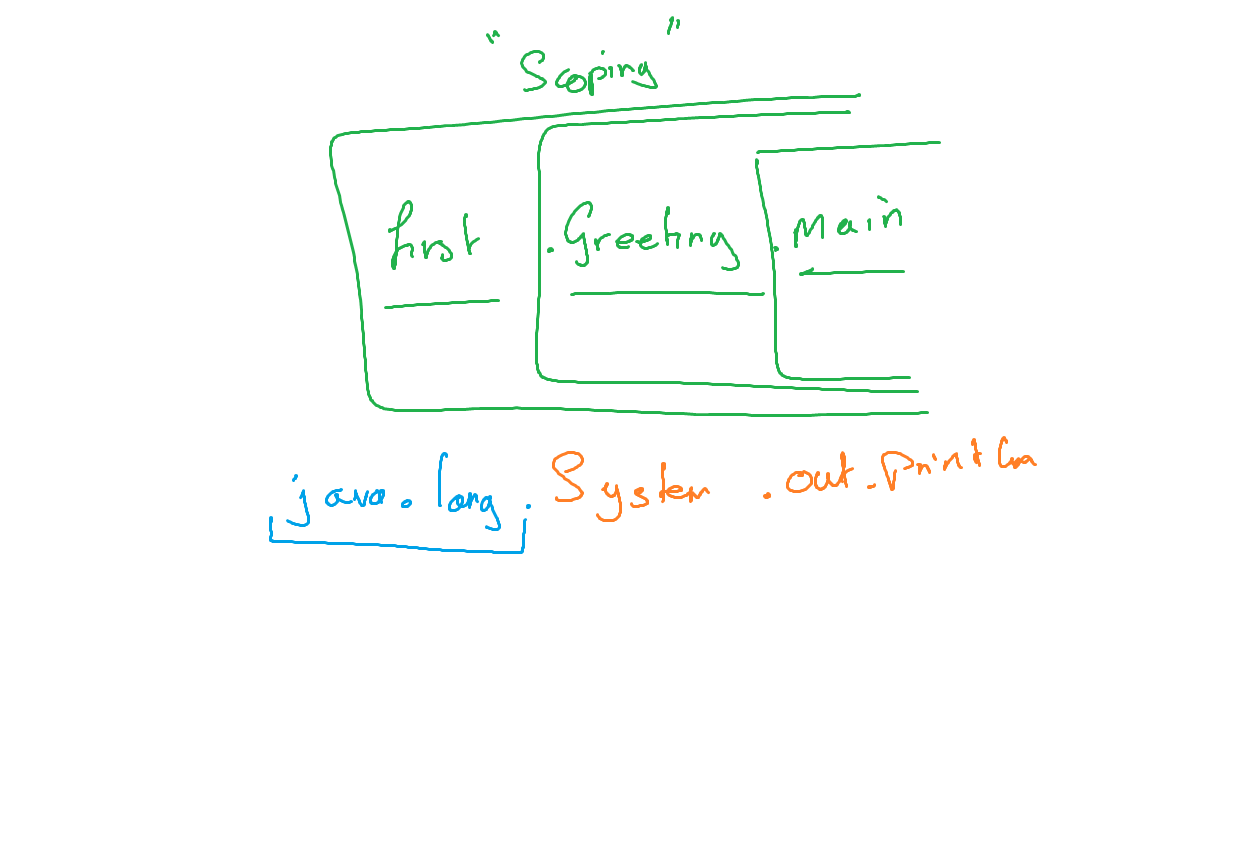 "Scoping"
first .Greeting .Main
java.lang.System.out.println